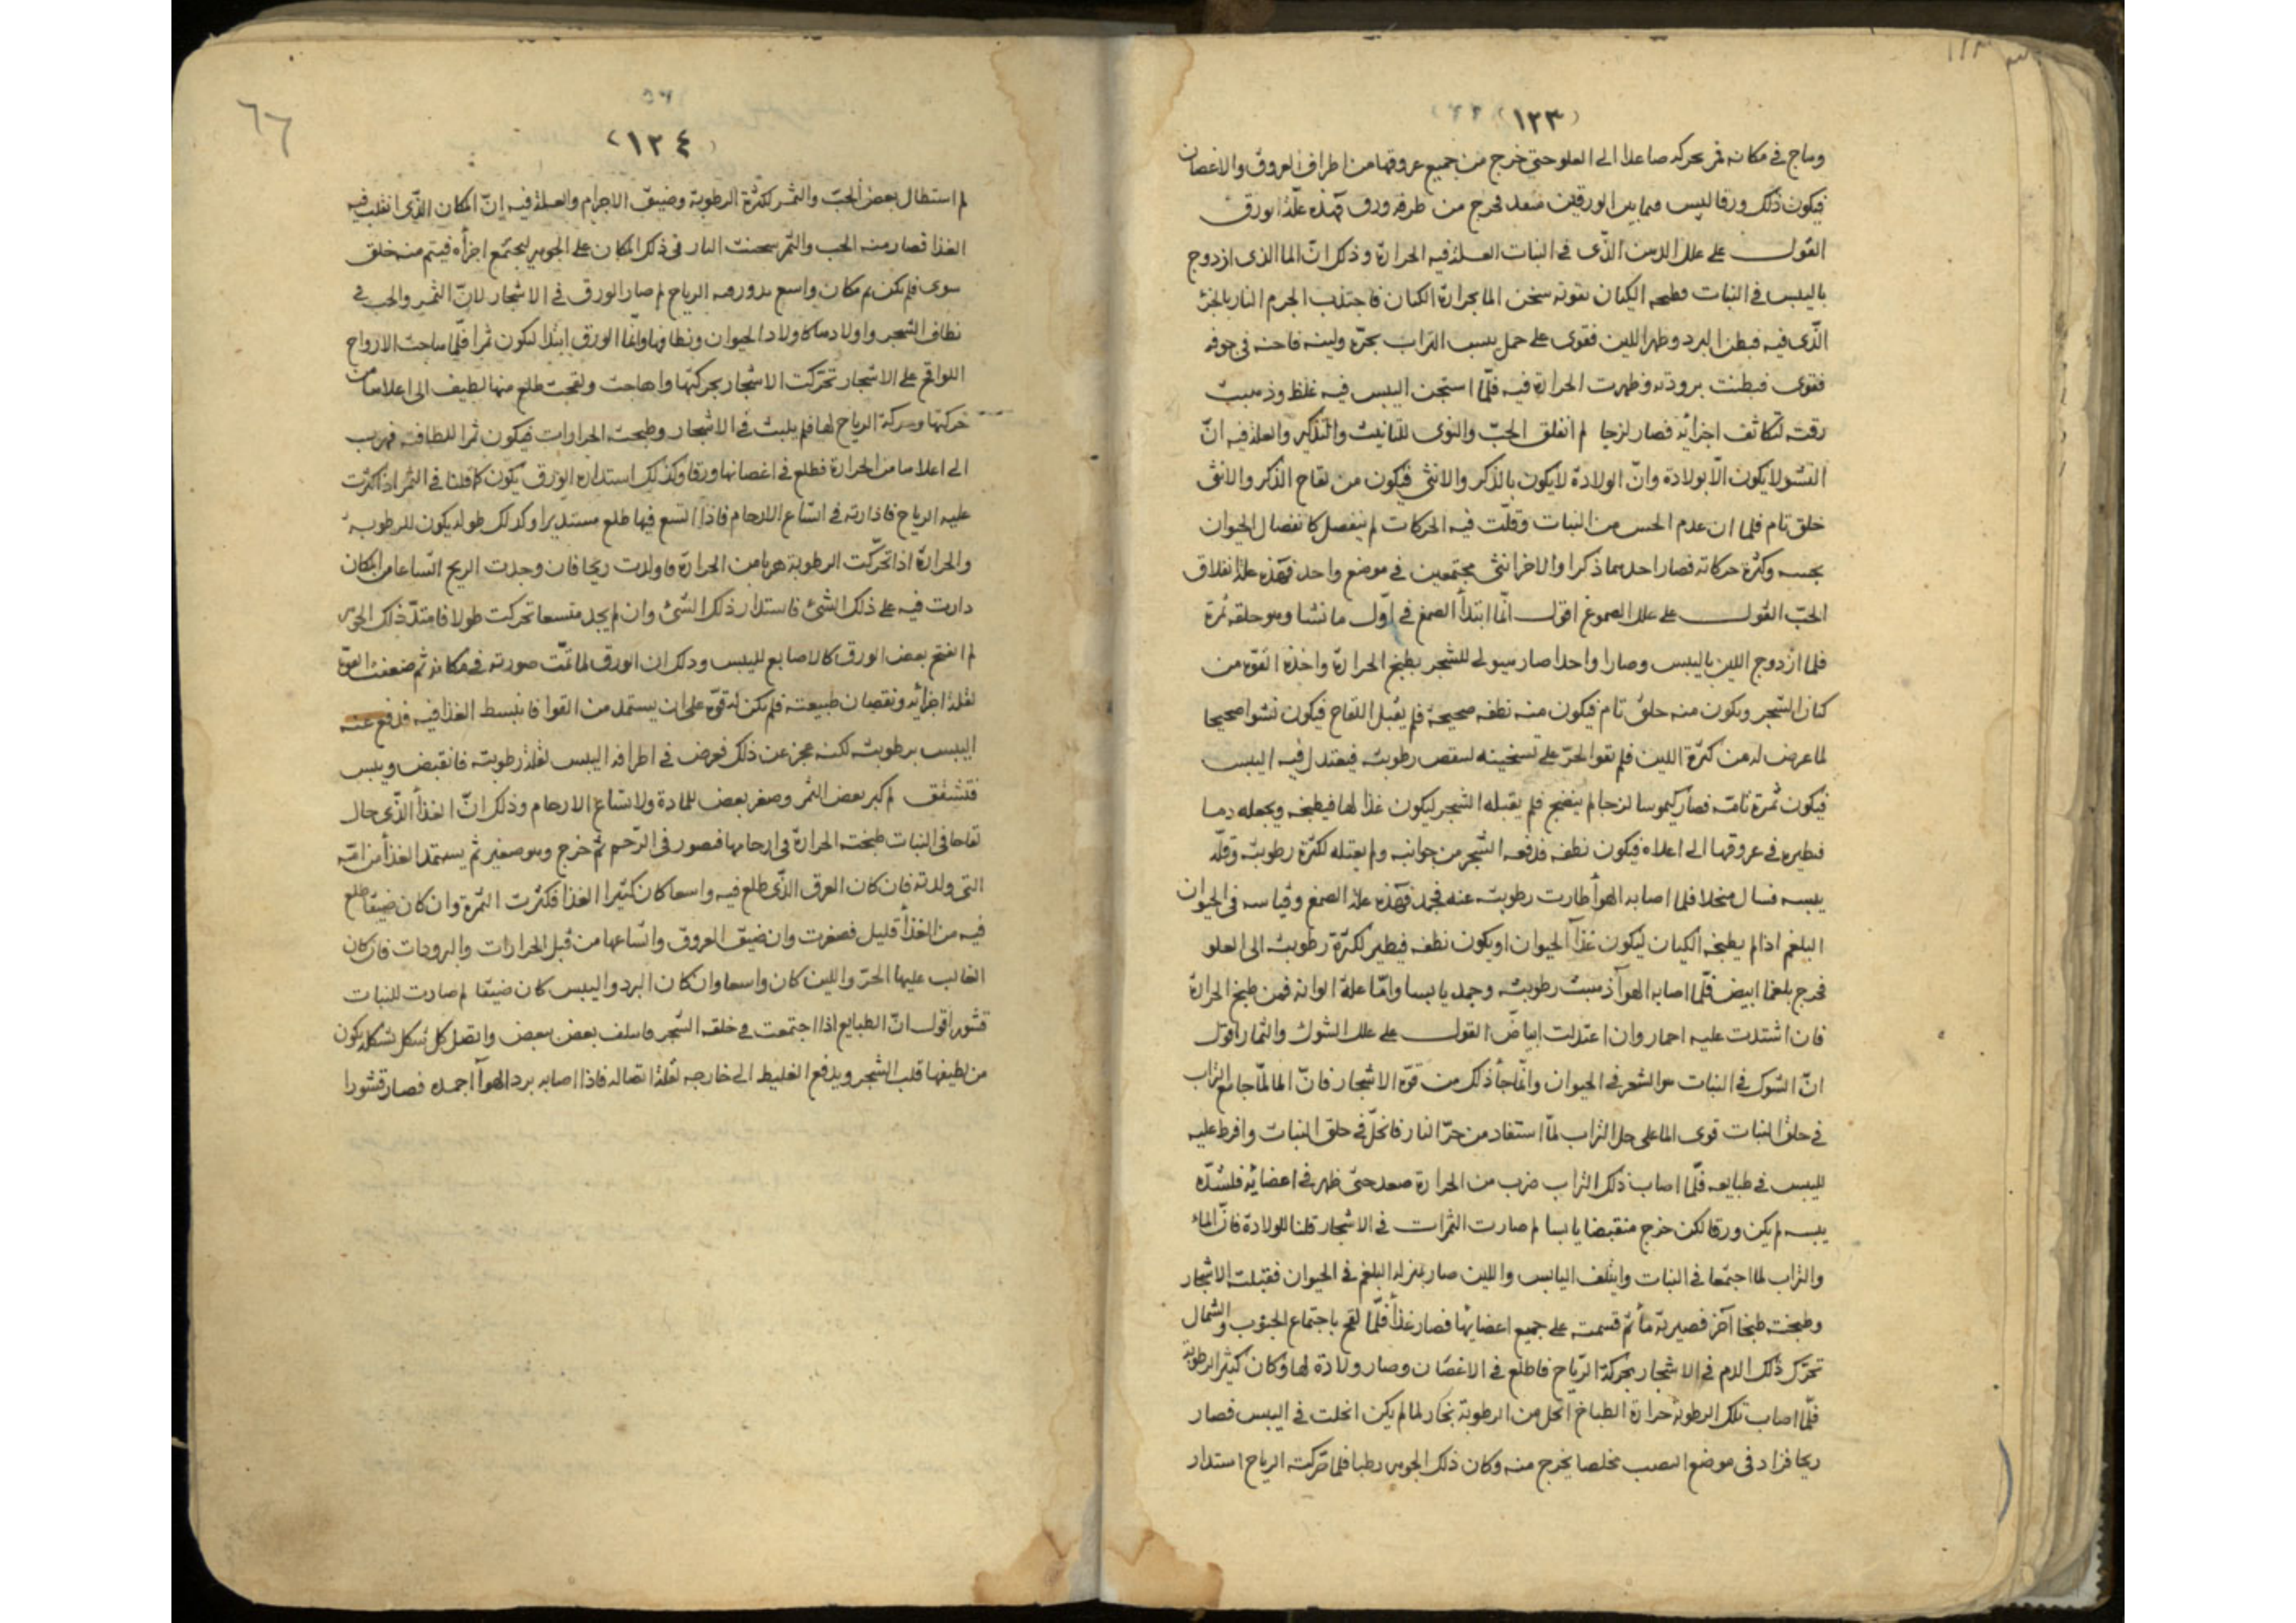 (١٢٣)
وماج في مكانه ثم بحركه صاعدا الى العلو حتى خرج من جميع عروقها من اطراف العروق والاغصان
فيكون ذلك ورقا ليس فيما بين الورقين منعد فخرج من طرفه ورق فهذه علّة الورق
القول على علل الدهن الذّي في النبات العلة فيه الحرارة وذلك انّ الما الذى ازدوج
باليبس في النبات وطبخه الكيان بقوته سخن الما بحرارة الكيان فاجتذب الجرم النار بالجزء
الّذى فيه فبطن البرد وظهر اللين فقوى على حمل يبس التراب بحرّه ولينه فاحنه في جوفه
فقوى فبطنت برودته وظهرت الحرارة فيه فلّما استجن اليبس فيه غلظ وذهبت
رقته لتكاثف اجزائه فصار لزجا لم انفلق الحبّ والنوى للتانيث والتذكير والعلة فيه انّ
النشو لايكون الّا بولادة وانّ الولادة لايكون بالذكر والانثى فيكون من لقاح الذكر والانثى
خلق تام فلما ان عدم الحس من النبات وقلّت فيه الحركات لم ينفصل كانفصال الحيوان
بحسه وكثرة حركاته فصار احدهما ذكرا والاخر انثى مجتمعين في موضع واحد فهذه علة انفلاق
الحبّ القول على علل الصموغ اقول انّما ابتدأ الصمغ في اوّل ما نشا وهو حلقه ثمرة
فلما ازدوج اللين باليبس وصارا واحدا صار هيولى للشجر بطبخ الحرارة واخذة القوة من
كيان الشجر ويكون منه خلق تام فيكون منه نطفه صحيحة فلم يقبل اللقاح فيكون نشوا صحيحا
لما عرض له من كثرة اللين فلم تقوا الحرّ على تسخينه لينقص رطوبته فيعتدل فيه اليبس
فيكون ثمرة تامّة فصار كيموسا لزجا لم ينضج فلم يقبله الشجر ليكون غذأ لها فيطبخه ويجعله دما
فيطيره في عروقها الى اعلاه فيكون نطفه فدفعه الشجر من جوانبه ولم يقبله لكثرة رطوبته وقلّة
يبسه فسال منحلا فلما اصابه الهوأ طارت رطوبته عنه فجمد فهذه علة الصمغ وقياسه في الحيوان
البلغم اذا لم يطبخه الكيان ليكون غذآ الحيوان او يكون نطفه فيطير لكثرة رطوبته الى العلو
فخرج بلغما ابيض فلّما اصابه الهوآ ذهبت رطوبته وجمد يابسا وامّا علة الوانه فمن طبخ الحرارة
فان اشتدت عليه احمار وان اعتدلت ابياضّ القول على علل الشوك والثمار اقول
انّ الشوك في النبات هو الشعر في الحيوان وانّما جأ ذلك من قوّة الاشجار فانّ الما لمّا جامع التراب
في خلق النبات قوى الما على حل التراب لمّا استفاد من حرّ النار فانحلّ في خلق النبات وافرط عليه
لليبس في طبايعه فلّما اصاب ذلك التراب ضرب من الحرارة صعد حتى ظهر في اعضائه فلشدّة
يبسه لم يكن ورقا لكن خرج منقبضا يابسا لم صارت الثمرات في الاشجار قلنا للولادة فانّ الماء
والتراب لما اجتمعا في النبات وايتلف اليابس واللين صار بمنزلة البلغم في الحيوان فقبلته الاشجار
وطبخته طبخا آخر فصيرته مأ ثم قسمت على جميع اعضايها فصار غذأ فلّما لقح باجتماع الجنوب والشمال
تحرّك ذلك الدم في الاشجار بحركة الرّياح فاطلع في الاغصان وصار ولادة لها وكان كثير الرطوبة
فلّما اصاب تلك الرطوبة حرارة الطباخ انحل من الرطوبة بخار لما لم يكن انحلت في اليبس فصار
ريحا فزاد في موضع النصب مخلصا يخرج منه وكان ذلك الجوهر رطبا فلما حركته الرياح استدار
٦٦
(١٢٤)
لم استطال بعض الحبّ والثمر لكثرة الرطوبة وضيق الاجرام والعلة فيه انّ المكان الذّي انقلب فيه
الغذا فصار منه الحب والثمر سخنت النار في ذلك المكان على الجوهر ليجتمع اجزأه فيتم منه خلق
سوى فلم يكن ثم مكان واسع يدوره الرياح لم صار الورق في الاشجار لانّ الثمر والحب في
نطاف الشجر واولادها كاولاد الحيوان ونطافها وانّما الورق ابتدا ليكون ثمرا فلّما هاجت الارواح
اللواقح على الاشجار تحرّكت الاشجار بحركتها واهاجت ولقحت طلع منها لطيف الى اعلاها من
حركتها وحركة الرياح لها فلم يلبث في الاشجار وطبخته الحرارات فيكون ثمرا للطافته فهرب
الى اعلاها من الحرارة فطلع في اغصانها ورقا وكذلك استدارة الورق يكون كما قلنا في الثمر اذا كثرت
عليه الرياح فادارته في اتساع الارحام فاذا اتسع فيها طلع مستديرا وكذلك طوله يكون للرطوبة
والحرارة اذا تحرّكت الرطوبة هربا من الحرارة فاولدت ريحا فان وجدت الريح اتساعا من المكان
دارت فيه على ذلك الشئ فاستدار ذلك الشئ وان لم يجد متسعا تحركت طولا فامتدّ ذلك الجوهر
لم انفتح بعض الورق كالاصابع لليبس وذلك ان الورق لما تمّت صورته في مكانه ثم ضعفت القوة
لقلة اجزائه ونقصان طبيعته فلم يكن له قوّة على ان يستمد من القوا فانبسط الغذا فيه فدفع عنه
اليبس برطوبته لكنه عجز عن ذلك فعرض في اطرافه اليبس لقلة رطوبته فانقبض ويبس
فتشقق لم كبر بعض الثمر وصغر بعض للمادة ولاتساع الارحام وذلك انّ الغذأ الذّى حال
لقاحا في النبات طبخته الحرارة في ارحامها فصور في الرّحم ثم خرج وهو صغير ثم يستمد الغذأ من امّه
التى ولدته فان كان العرق الذّى طلع فيه واسعا كان كثيرا الغذا فكثرت الثمرة وان كان ضيقا طلع
فيه من الغذأ قليل فصغرت وان ضيق العروق واتّساعها من قبل الحرارات والبرودات فان كان
الغالب عليها الحرّ واللين كان واسعا وان كان البرد واليبس كان ضيقا لم صارت للنبات
قشور اقول انّ الطبايع اذا اجتمعت في خلقه الشجر فاسلف بعض ببعض واتصل كل شكل بشكله يكون
من لطيفها قلب الشجر ويدفع الغليظ الى خارجه لقلة اتصاله فاذا اصابه برد الهوآ اجمده فصار قشورا